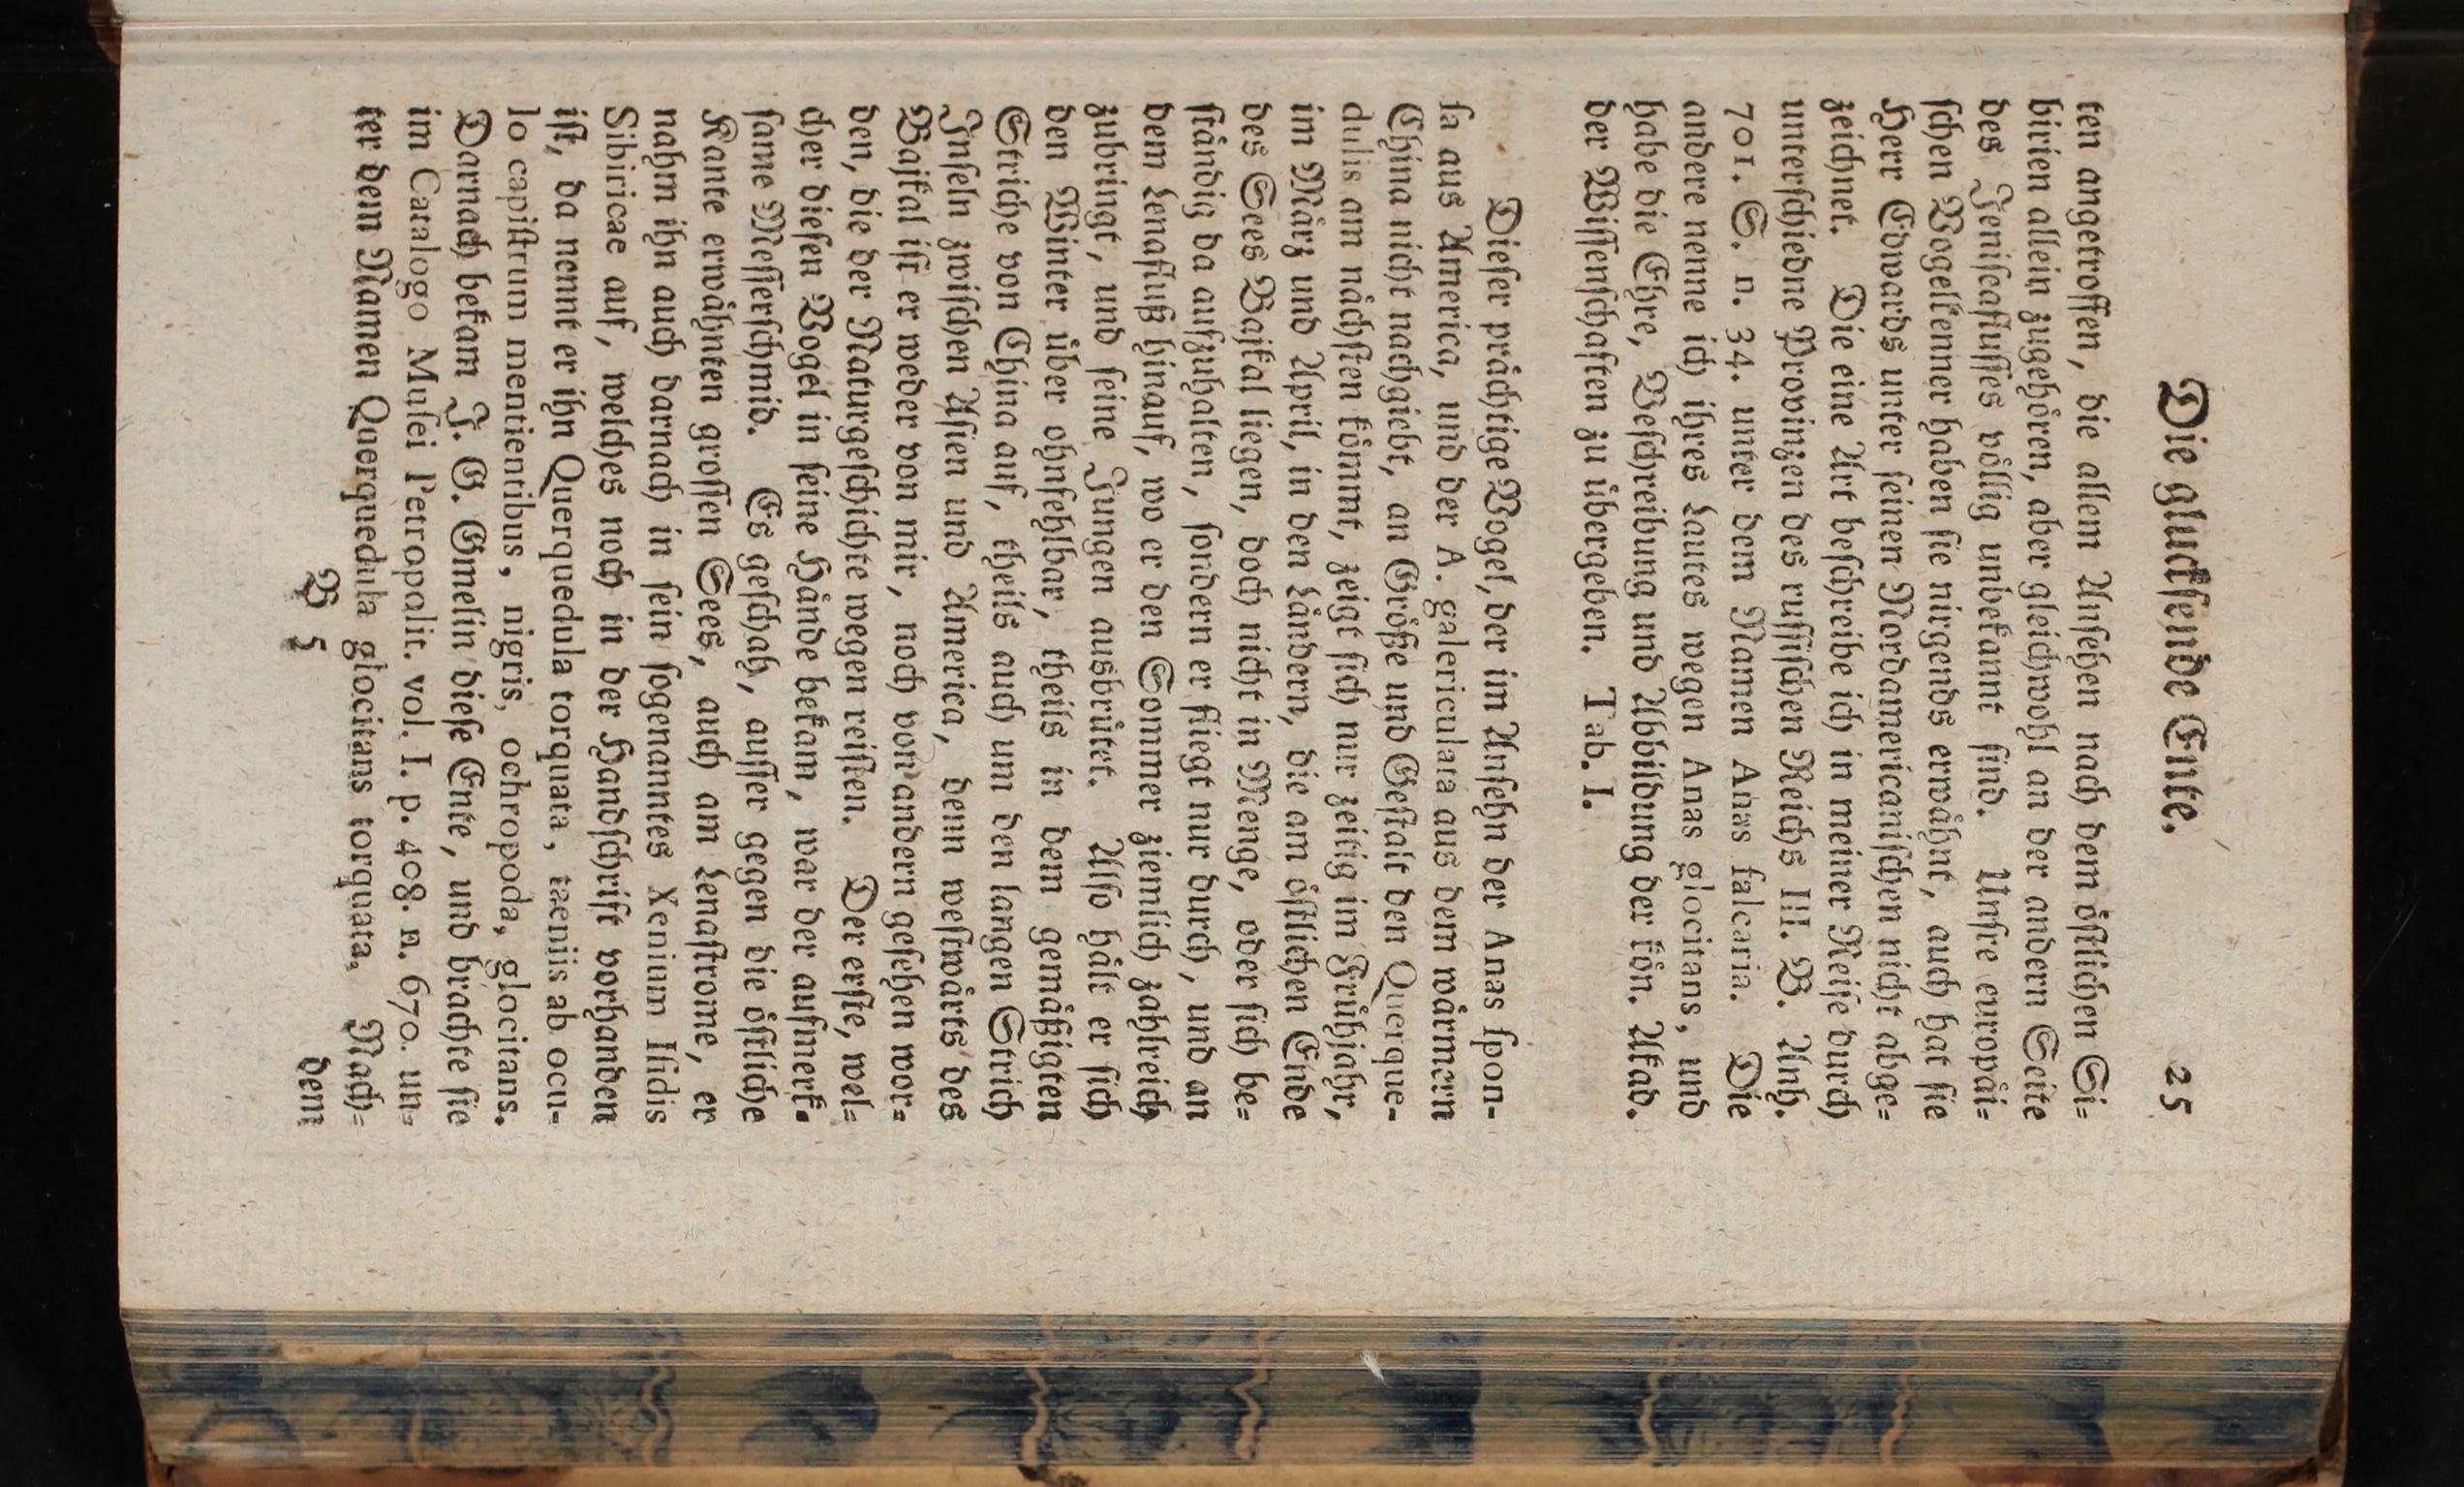 Die gluckſende Ente. 25
ten angetroffen, die allem Anſehen nach dem öſtlichen Si-
birien allein zugehören, aber gleichwohl an der andern Seite
des Jeniſeafluſſes völlig unbekannt ſind. Unſre europäi-
ſchen Vogelkenner haben ſie nirgends erwähnt, auch hat ſie
Herr Edwards unter ſeinen Nordamericaniſchen nicht abge-
zeichnet. Die eine Art beſchreibe ich in meiner Reiſe durch
unterſchiedne Provinzen des ruſſiſchen Reichs III. B. Anh.
701. S. n. 34. unter dem Namen Anas falcaria. Die
andere nenne ich ihres Lautes wegen Anas glocitans, und
habe die Ehre, Beſchreibung und Abbildung der kön. Akad.
der Wiſſenſchaften zu übergeben. Tab. I.
Dieſer prächtige Vogel, der im Anſehn der Anas ſpon-
ſa aus America, und der A. galericulata aus dem wärmern
China nicht nachgiebt, an Größe und Geſtalt den Querque-
dulis am nächſten kömmt, zeigt ſich nur zeitig im Frühjahr,
im März und April, in den Ländern, die am öſtlichen Ende
des Sees Bajkal liegen, doch nicht in Menge, oder ſich be-
ſtändig da aufzuhalten, ſondern er fliegt nur durch, und an
dem Lenafluß hinauf, wo er den Sommer ziemlich zahlreich
zubringt, und ſeine Jungen ausbrütet. Alſo hält er ſich
den Winter über ohnfehlbar, theils in dem gemäßigten
Striche von China auf, theils auch um den langen Strich
Inſeln zwiſchen Aſien und America, denn weſtwärts des
Bajkal iſt er weder von mir, noch von andern geſehen wor-
den, die der Naturgeſchichte wegen reiſten. Der erſte, wel-
cher dieſen Vogel in ſeine Hände bekam, war der aufmerk-
ſame Meſſerſchmid. Es geſchah, auſſer gegen die öſtliche
Kante erwähnten groſſen Sees, auch am Lenaſtrome, er
nahm ihn auch darnach in ſein ſogenanntes Xenium Iſidis
Sibiricae auf, welches noch in der Handſchrift vorhanden
iſt, da nennt er ihn Querquedula torquata, taeniis ab ocu-
lo capiſtrum mentientibus, nigris, ochropoda, glocitans.
Darnach bekam J. G. Gmelin dieſe Ente, und brachte ſie
im Catalogo Muſei Petropalit. vol. I. p. 408. n. 670. un-
ter dem Namen Querquedula glocitans torquata. Nach-
B 5 dem